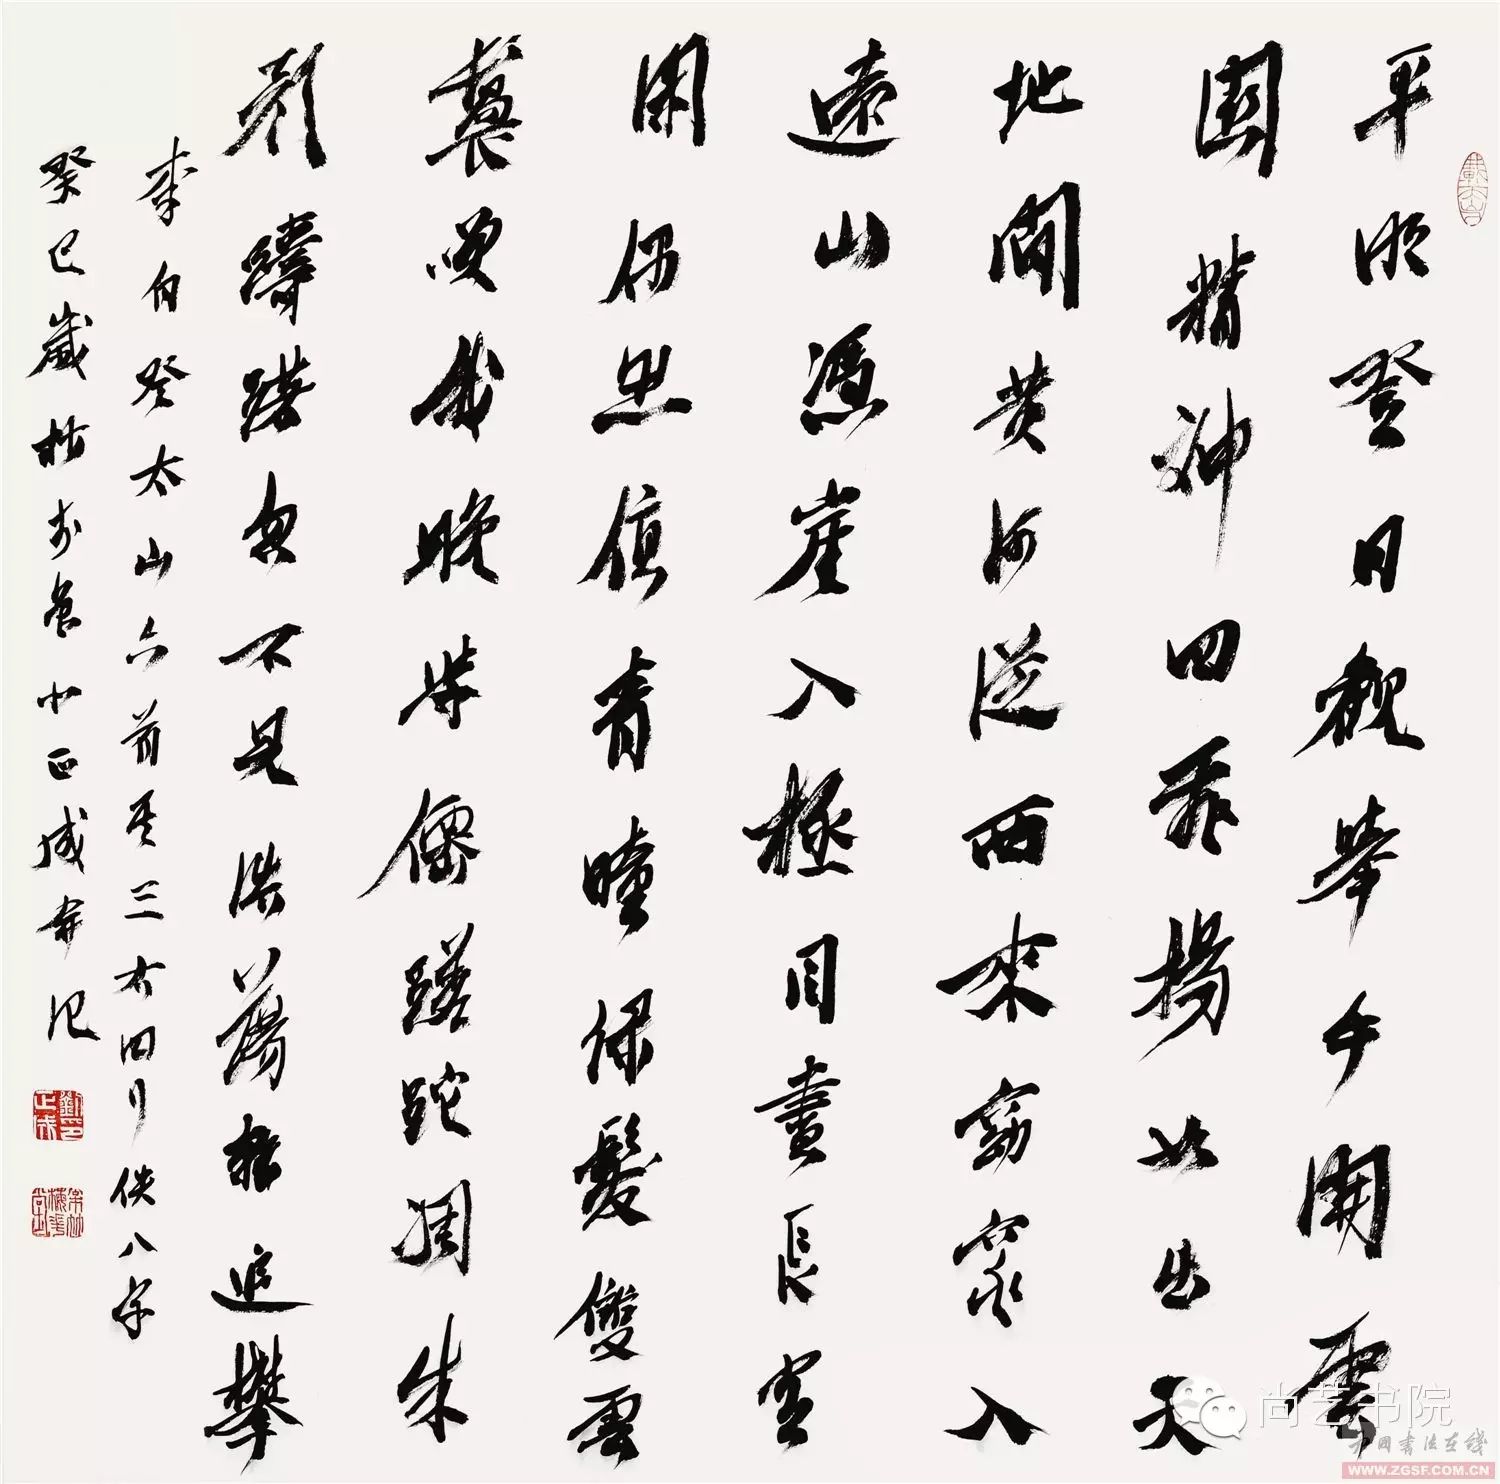 平明登日觀舉手開雲
關精神四飛揚如出天
地間黃河從西來窈窕入
遠山憑崖入極目盡長空
閑偶然值青瞳綠髮雙雲
鬟笑我晚學僊蹉跎凋朱
顏躊躇忽不見浩蕩難追攀
李白登太山六首其三右四行佚八字
癸巳歲 正成并記
尚艺书院
中国书法在线
WWW.ZGSF.COM.CN